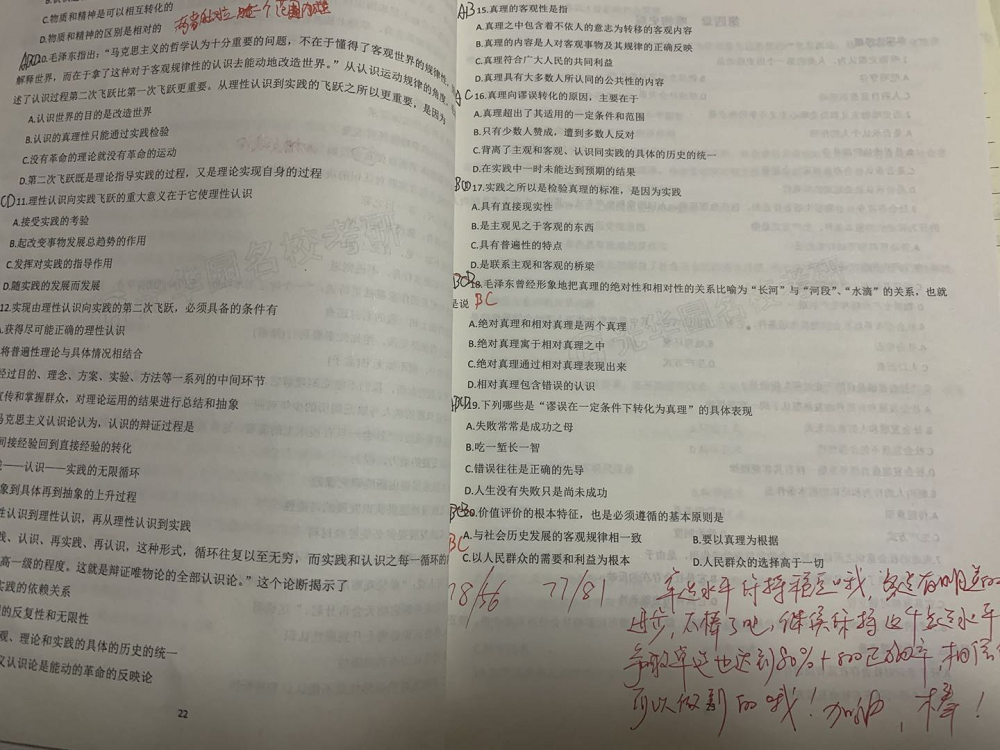 C.物质和精神是可以相互转化的
D.物质和精神的区别是相对的
ABD10.毛泽东指出:“马克思主义的哲学认为十分重要的问题,不在于懂得了客观世界的规律性,
解释世界,而在于拿了这种对于客观规律性的认识去能动地改造世界。”从认识运动规律的角度,
述了认识过程第二次飞跃比第一次飞跃更重要。从理性认识到实践的飞跃之所以更重要,是因为
A.认识世界的目的是改造世界
B.认识的真理性只能通过实践检验
C.没有革命的理论就没有革命的运动
D.第二次飞跃既是理论指导实践的过程,又是理论实现自身的过程
CD 11.理性认识向实践飞跃的重大意义在于它使理性认识
A.接受实践的考验
B.起改变事物发展总趋势的作用
C.发挥对实践的指导作用
D.随实践的发展而发展
12.实现由理性认识向实践的第二次飞跃,必须具备的条件有
.获得尽可能正确的理性认识
将普遍性理论与具体情况相结合
经过目的、理念、方案、实验、方法等一系列的中间环节
宣传和掌握群众,对理论运用的结果进行总结和抽象
马克思主义认识论认为,认识的辩证过程是
间接经验回到直接经验的转化
——认识——实践的无限循环
象到具体再到抽象的上升过程
性认识到理性认识,再从理性认识到实践
践、认识、再实践、再认识,这种形式,循环往复以至无穷,而实践和认识之每一循环的
高一级的程度。这就是辩证唯物论的全部认识论。”这个论断揭示了
实践的依赖关系
的反复性和无限性
观、理论和实践的具体的历史的统一
义认识论是能动的革命的反映论
22
AB 15.真理的客观性是指
A.真理之中包含着不依人的意志为转移的客观内容
B.真理的内容是人对客观事物及其规律的正确反映
C.真理符合广大人民的共同利益
D.真理具有大多数人所认同的公共性的内容
AC 16.真理向谬误转化的原因,主要在于
A.真理超出了其适用的一定条件和范围
B.只有少数人赞成,遭到多数人反对
C.背离了主观和客观、认识同实践的具体的历史的统一
D.在实践中一时未能达到预期的结果
17.实践之所以是检验真理的标准,是因为实践
A.具有直接现实性
B.是主观见之于客观的东西
C.具有普遍性的特点
D.是联系主观和客观的桥梁
BCD 18.毛泽东曾经形象地把真理的绝对性和相对性的关系比喻为“长河”与“河段”、“水滴”的关系,也就
是说 BC
A.绝对真理和相对真理是两个真理
B.绝对真理寓于相对真理之中
C.绝对真理通过相对真理表现出来
D.相对真理包含错误的认识
19.下列哪些是“谬误在一定条件下转化为真理”的具体表现
A.失败常常是成功之母
B.吃一堑长一智
C.错误往往是正确的先导
D.人生没有失败只是尚未成功
20.价值评价的根本特征,也是必须遵循的基本原则是
A.与社会历史发展的客观规律相一致 B.要以真理为根据
BC
C.以人民群众的需要和利益为根本 D.人民群众的选择高于一切
78/56 77/81 单选水平保持稳定哦,多选有明显的
进步,太棒了吧,继续保持这个多选水平
争取单选也达到80%+的正确率,相信
可以做到的哦!加油,棒!